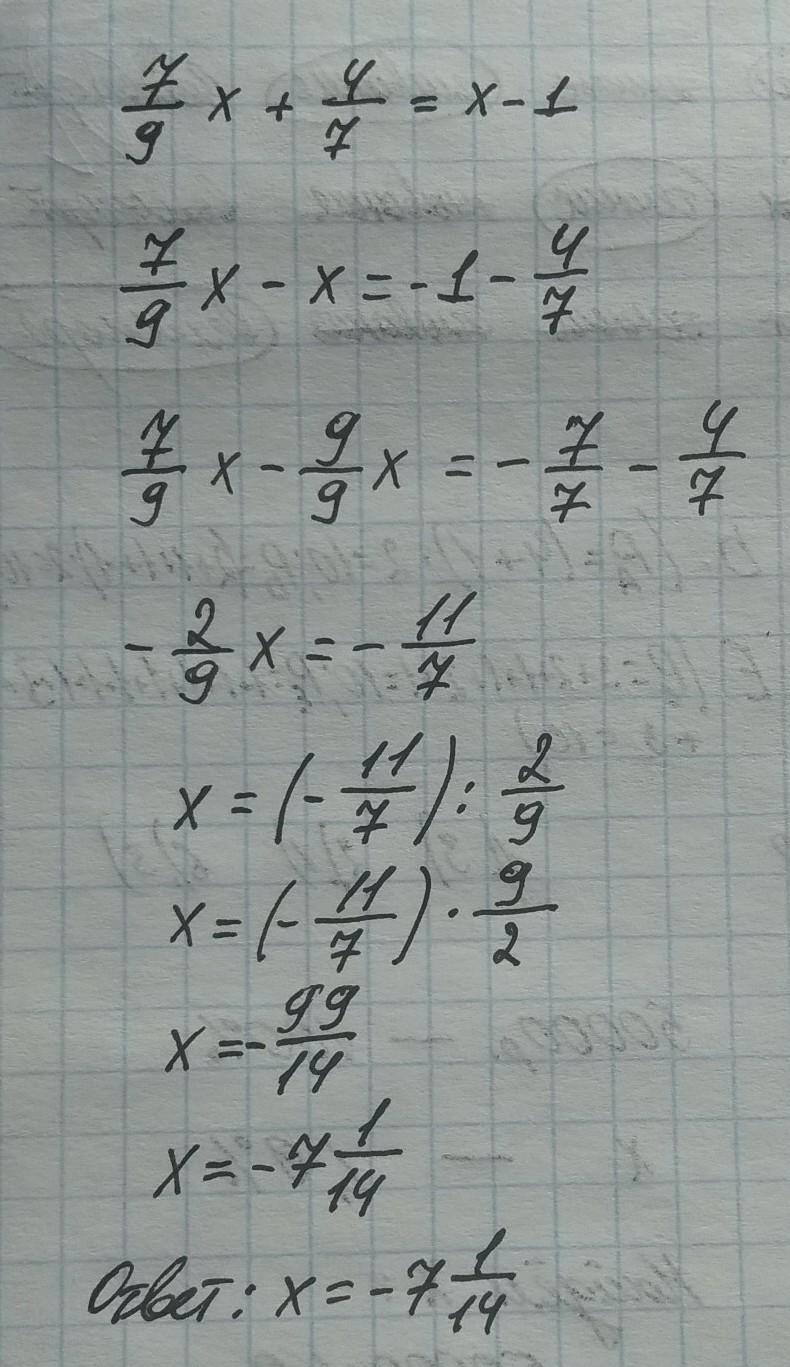 7/9 x + 4/7 = x - 1
7/9 x - x = -1 - 4/7
7/9 x - 9/9 x = - 7/7 - 4/7
- 2/9 x = - 11/7
x = (- 11/7) : 2/9
x = (- 11/7) · 9/2
x = - 99/14
x = -7 1/14
Ответ: x = -7 1/14